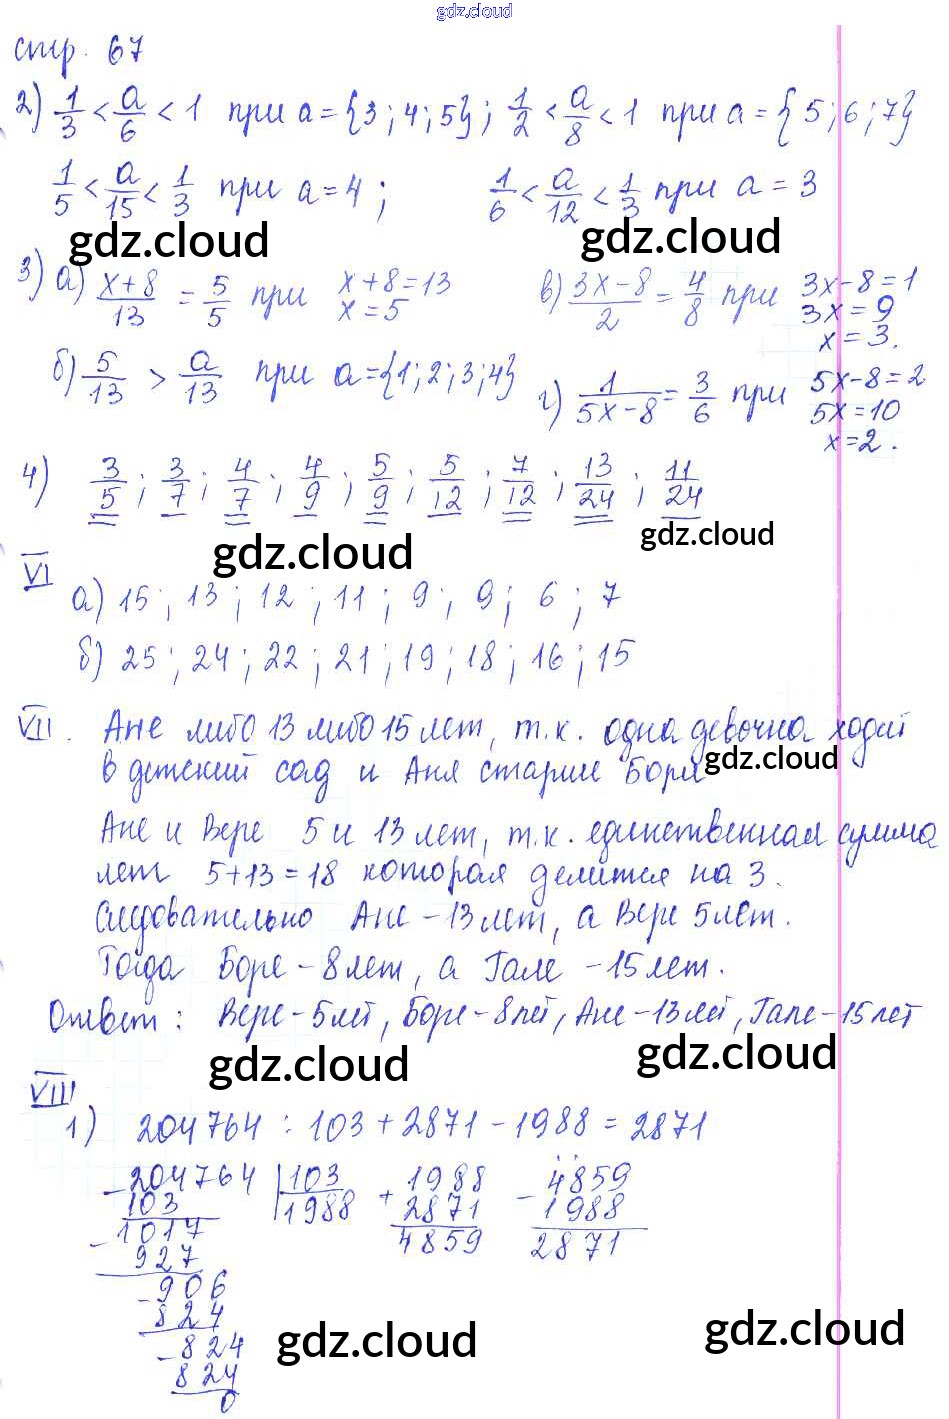 gdz.cloud
стр. 67
2) 1/3 < a/6 < 1 при a = {3; 4; 5}; 1/2 < a/8 < 1 при a = {5; 6; 7}
1/5 < a/15 < 1/3 при a = 4; 1/6 < a/12 < 1/3 при a = 3
gdz.cloud gdz.cloud
3) а) (x+8)/13 = 5/5 при x+8=13
x=5
в) (3x-8)/2 = 4/8 при 3x-8=1
3x=9
x=3.
б) 5/13 > a/13 при a={1; 2; 3; 4}
г) 1/(5x-8) = 3/6 при 5x-8=2
5x=10
x=2.
4) 3/5; 3/7; 4/7; 4/9; 5/9; 5/12; 7/12; 13/24; 11/24
gdz.cloud gdz.cloud
VI
а) 15; 13; 12; 11; 9; 9; 6; 7
б) 25; 24; 22; 21; 19; 18; 16; 15
VII. Ане либо 13 либо 15 лет, т.к. одна девочка ходит
в детский сад и Аня старше Бори
gdz.cloud
Ане и Вере 5 и 13 лет, т.к. единственная сумма
лет 5+13=18 которая делится на 3.
Следовательно Ане - 13 лет, а Вере 5 лет.
Тогда Боре - 8 лет, а Гале - 15 лет.
Ответ: Вере - 5 лет, Боре - 8 лет, Ане - 13 лет, Гале - 15 лет
gdz.cloud gdz.cloud
VIII
1) 204764 : 103 + 2871 - 1988 = 2871
-204764 |103 +1988 -4859
103 1988 2871 1988
-1017 4859 2871
927
-906
824
-824
824
0
gdz.cloud gdz.cloud